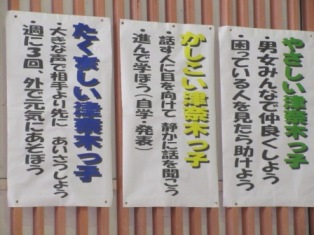 やさしい津奈木っ子
・男女みんなで仲良くしよう
・困っている人を見たら助けよう
かしこい津奈木っ子
・話す人に目を向けて 静かに話を聞こう
・進んで学ぼう(自学・発表)
たくましい津奈木っ子
・大きな声で相手より先に あいさつしよう
・週に3回、外で元気にあそぼう